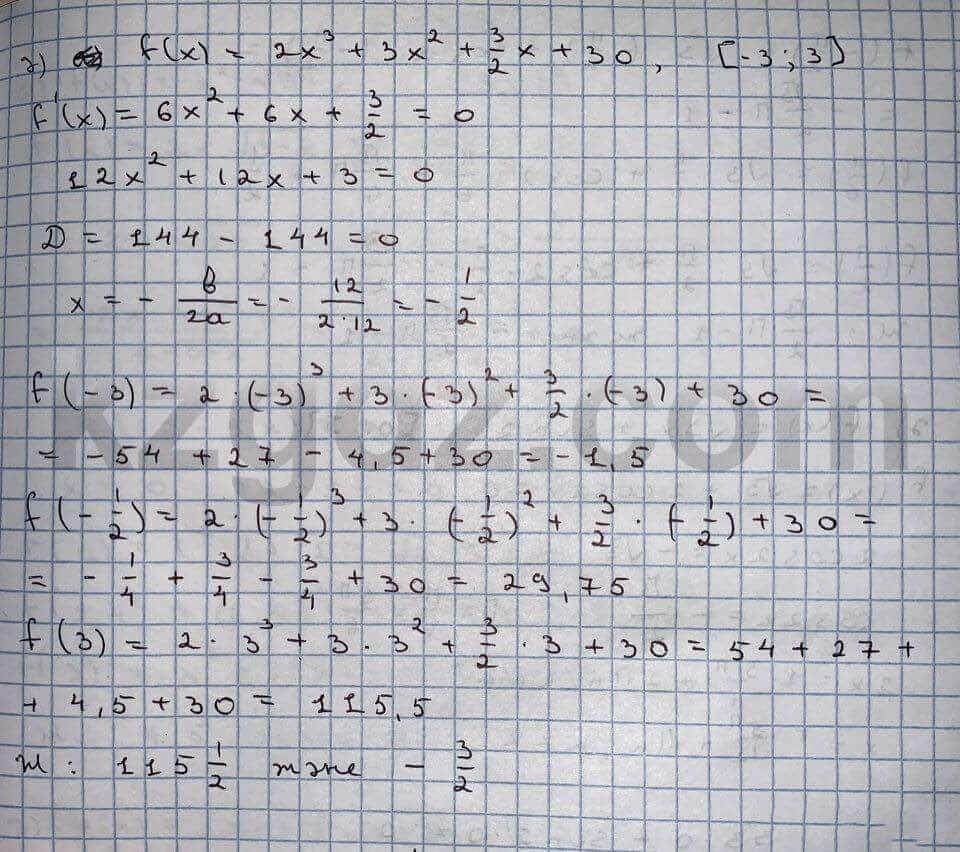 з) f(x) = 2x³ + 3x² + 3/2 x + 30, [-3; 3]
f'(x) = 6x² + 6x + 3/2 = 0
12x² + 12x + 3 = 0
D = 144 - 144 = 0
x = - b/2a = - 12/2·12 = - 1/2
f(-3) = 2·(-3)³ + 3·(-3)² + 3/2·(-3) + 30 =
= -54 + 27 - 4,5 + 30 = -1,5
f(-1/2) = 2·(-1/2)³ + 3·(-1/2)² + 3/2·(-1/2) + 30 =
= - 1/4 + 3/4 - 3/4 + 30 = 29,75
f(3) = 2·3³ + 3·3² + 3/2·3 + 30 = 54 + 27 +
+ 4,5 + 30 = 115,5
Ж: 115 1/2 және - 3/2
kzgdz.com